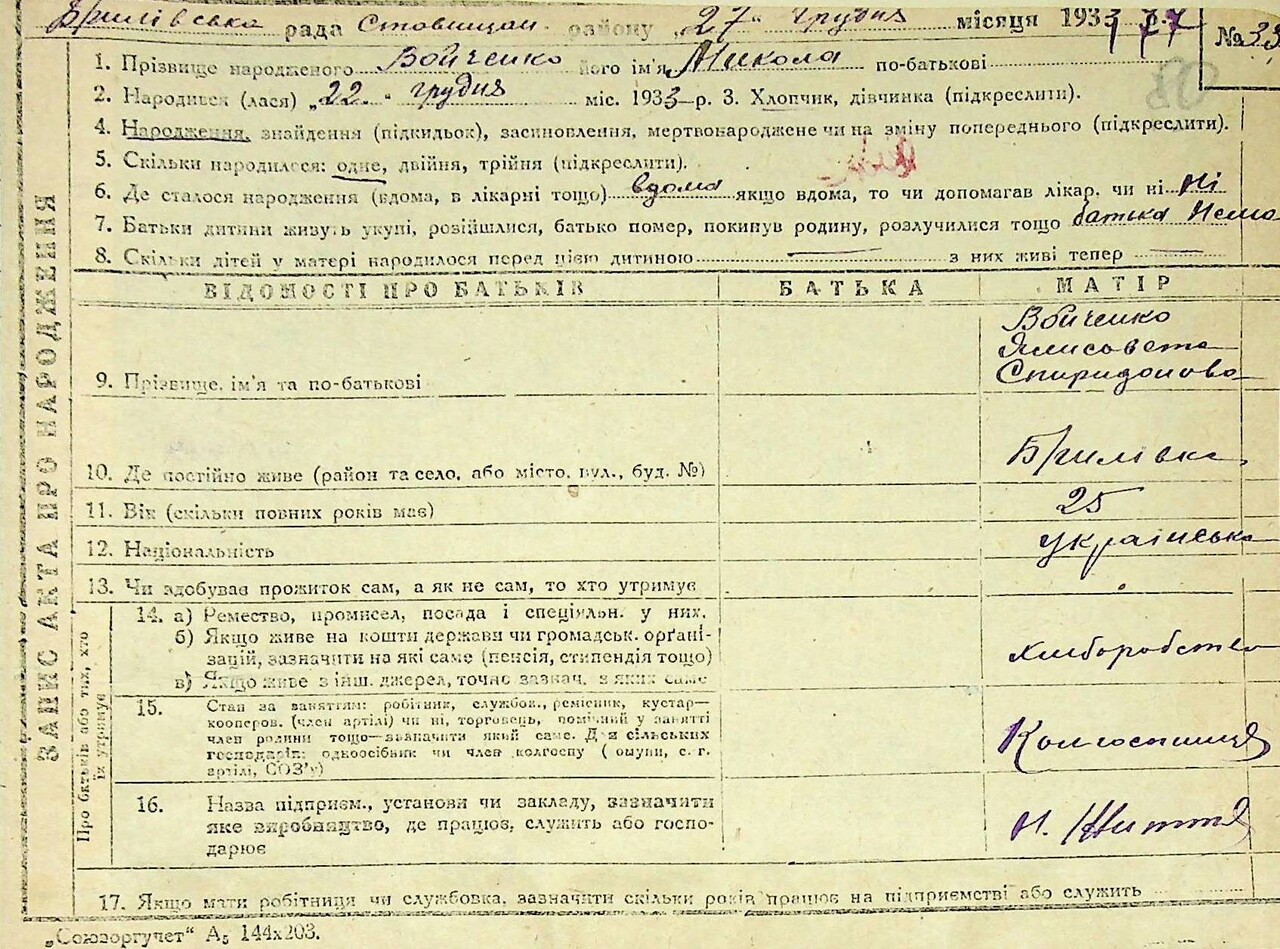 Брилівська рада Ставищан району „27" грудня місяця 1933 р.
№ 33
1. Прізвище народженого Войченко його ім'я Микола по-батькові
80
2. Народився (лася) „22" грудня міс. 1933 р. 3. Хлопчик, дівчинка (підкреслити).
4. Народження, знайдення (підкидьок), засиновлення, мертвонароджене чи на зміну попереднього (підкреслити).
5. Скільки народилося: одне, двійня, трійня (підкреслити).
6. Де сталося народження (вдома, в лікарні тощо) вдома якщо вдома, то чи допомагав лікар, чи ні Ні
7. Батьки дитини живуть укупі, розійшлися, батько помер, покинув родину, розлучилися тощо батька Нема
8. Скільки дітей у матері народилося перед цією дитиною — з них живі тепер —
ЗАПИС АКТА ПРО НАРОДЖЕННЯ
ВІДОМОСТІ ПРО БАТЬКІВ БАТЬКА МАТІР
9. Прізвище, ім'я та по-батькові
Войченко
Ялисовета
Спиридонова
10. Де постійно живе (район та село, або місто, вул., буд. №) Брилівка
11. Вік (скільки повних років має) 25
12. Національність українська
13. Чи здобуває прожиток сам, а як не сам, то хто утримує
Про батьків або тих, хто
їх утримує
14. а) Ремество, промисел, посада і спеціяльн. у них.
б) Якщо живе на кошти держави чи громадськ. орґані-
зацій, зазначити на які саме (пенсія, стипендія тощо)
в) Якщо живе з інш. джерел, точно зазнач. з яких саме
хліборобство
15. Стан за заняттям: робітник, службов., ремісник, кустар—
кооперов. (член артілі) чи ні, торговець, помічний у занятті
член родини тощо—зазначити який саме. Для сільських
господарів: одноосібник чи член колгоспу (омуни, с. г.
артілі, СОЗ'у)
Колгоспниця
16. Назва підприєм., установи чи закладу, зазначити
яке виробництво, де працює, служить або госпо-
дарює
Н. Життя
17. Якщо мати робітниця чи службовка, зазначити скільки років працює на підприємстві або служить
„Союзоргучет" А5 144х203.